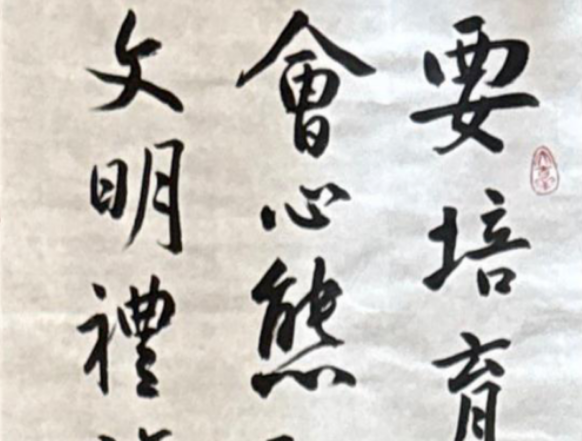 要培育
會心熊
文明禮